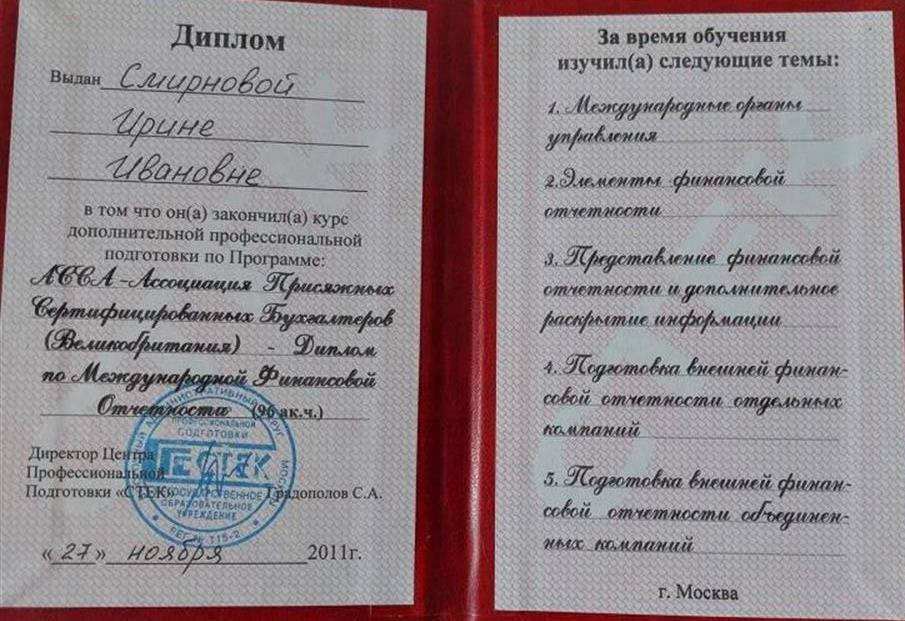 Диплом
Выдан Смирновой
Ирине
Ивановне
в том что он(а) закончил(а) курс
дополнительной профессиональной
подготовки по Программе:
АССА-Ассоциация Присяжных
Сертифицированных Бухгалтеров
(Великобритания) - Диплом
по Международной Финансовой
Отчетноста (96 ак.ч.)
Директор Центра
Профессиональной
Подготовки «СТЕК» Градополов С.А.
АДМИНИСТРАТИВНЫЙ ОКРУГ МОСКВЫ
ПРОФЕССИОНАЛЬНОЙ
ПОДГОТОВКИ
СТЕК
ГОСУДАРСТВЕННОЕ
ОБРАЗОВАТЕЛЬНОЕ
УЧРЕЖДЕНИЕ
РЕГ.№ 115-2
«27» ноября 2011г.
За время обучения
изучил(а) следующие темы:
1. Международные органы
управления
2.Элементы финансовой
отчетности
3. Представление финансовой
отчетности и дополнительное
раскрытие информации
4. Подготовка внешней финан-
совой отчетности отдельных
компаний
5. Подготовка внешней финан-
совой отчетности объединен-
ных компаний
г. Москва